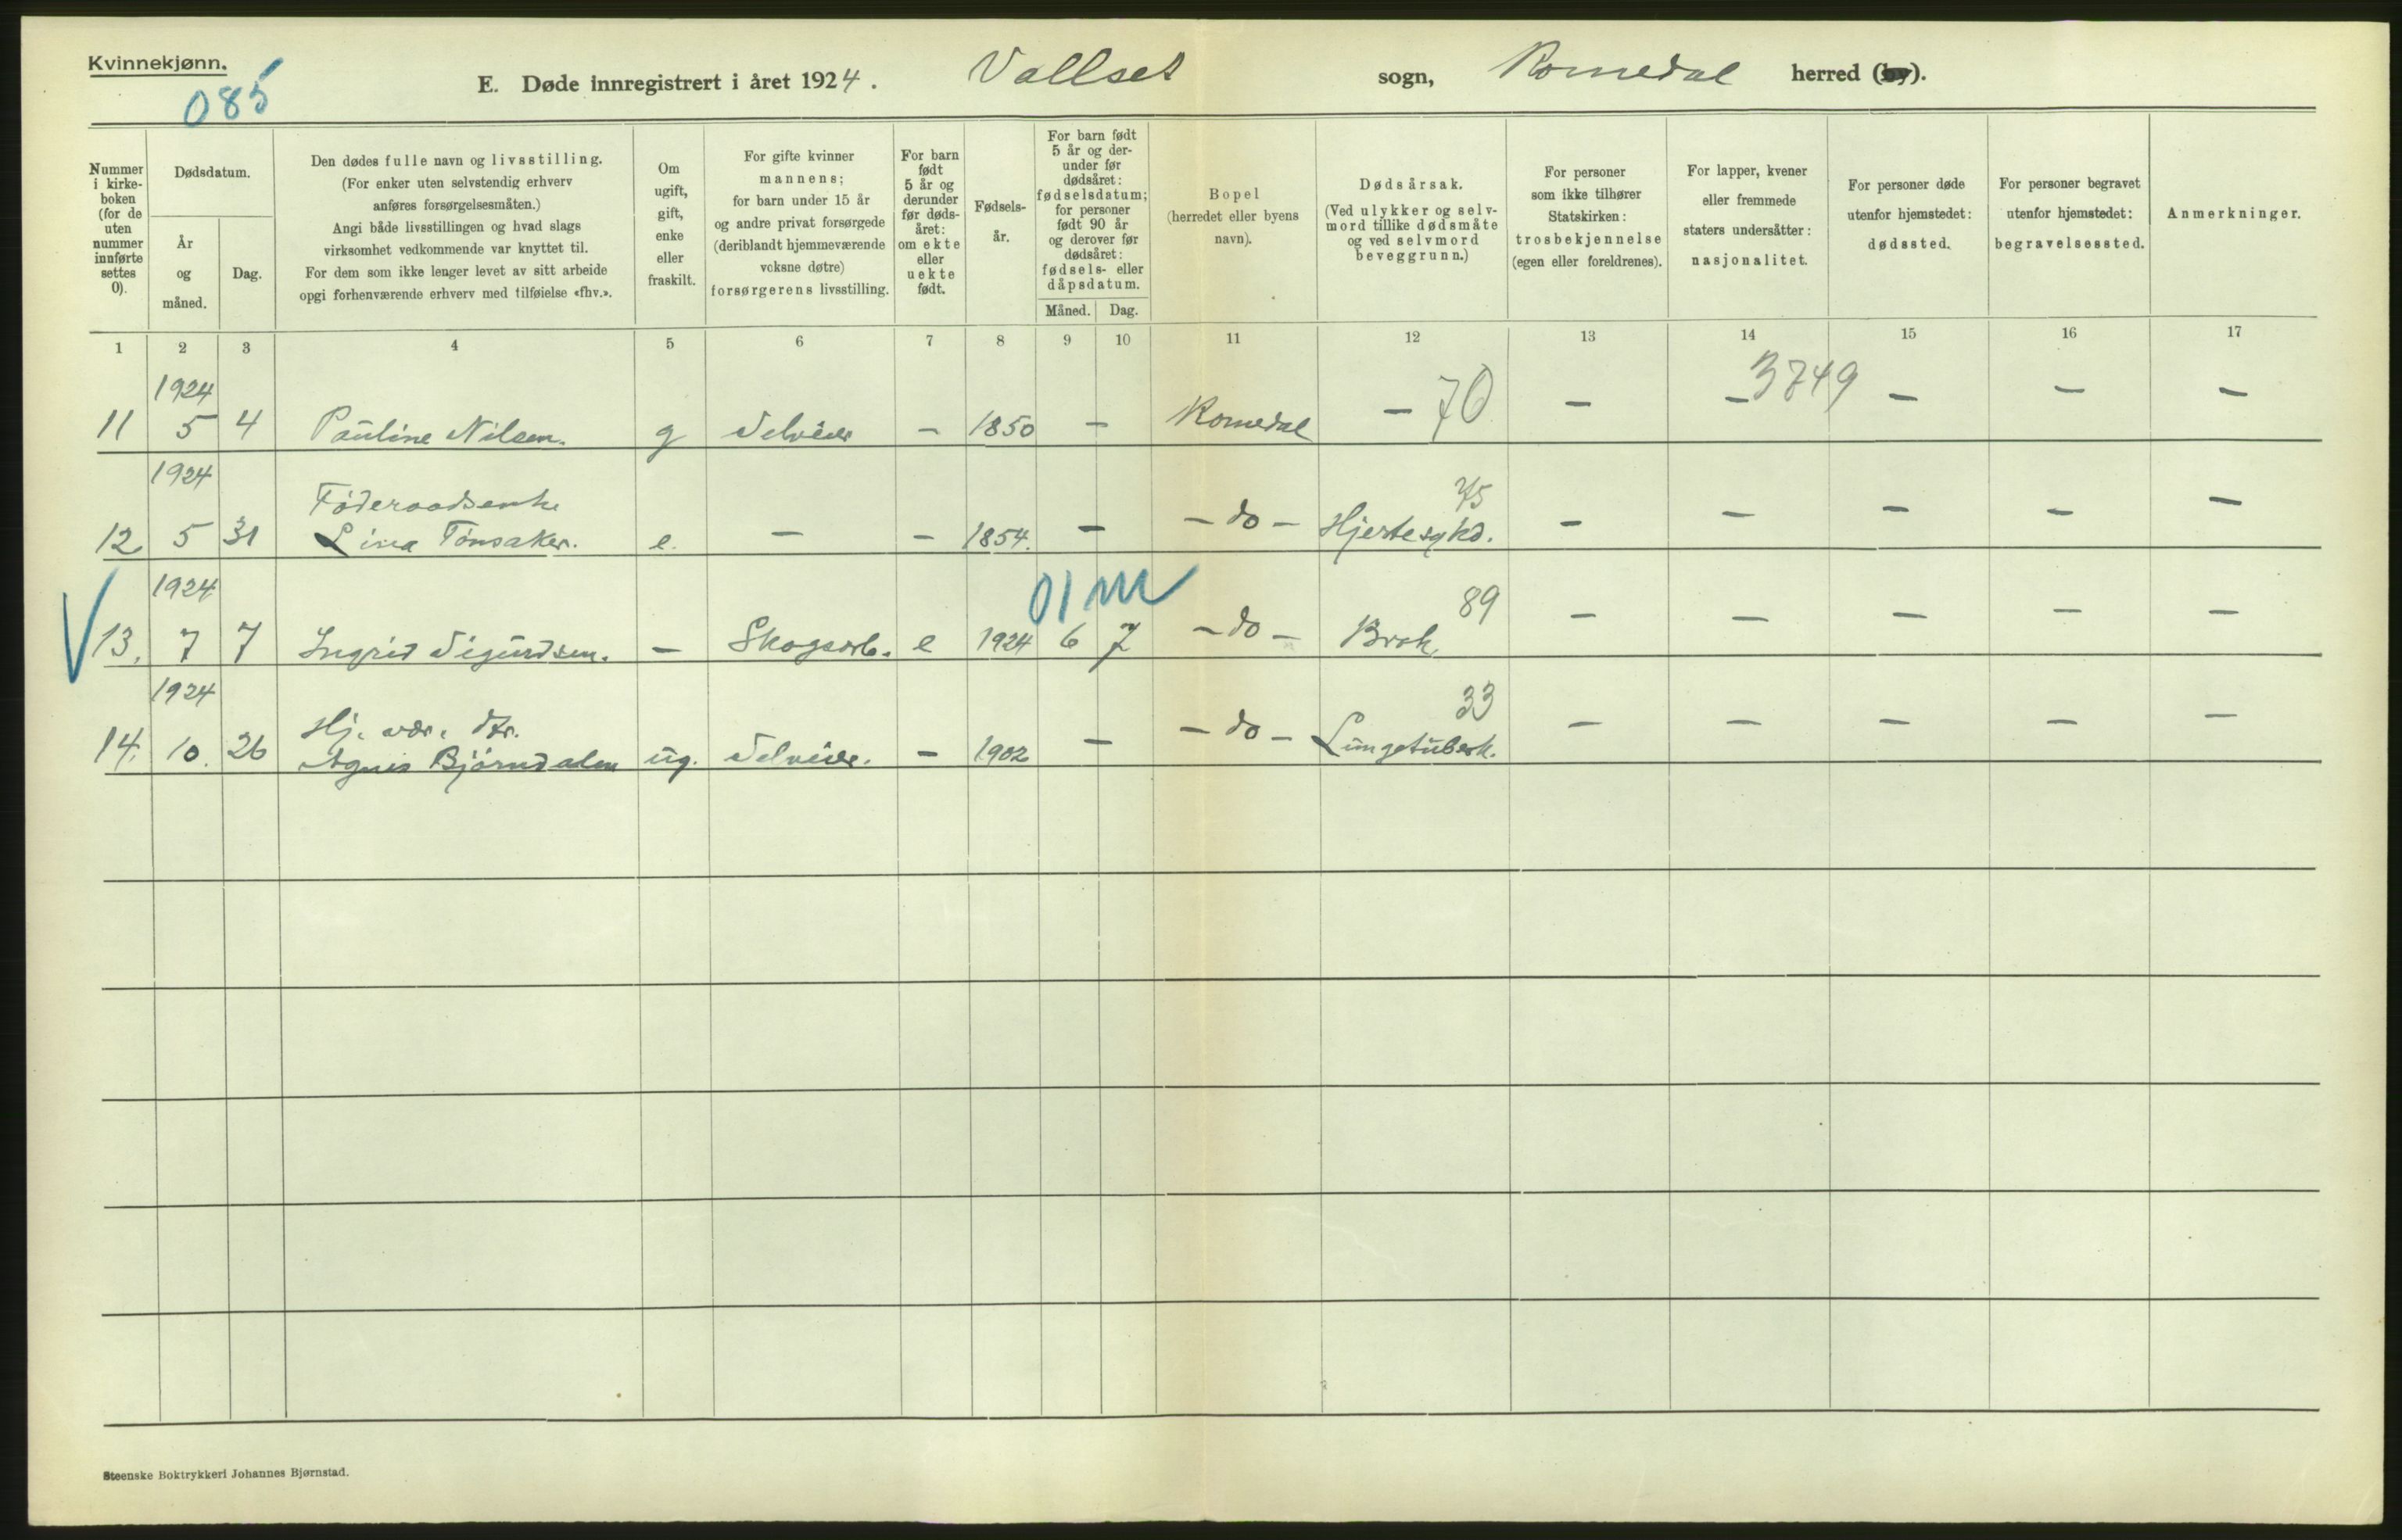 Kvinnekjønn.
085
E. Døde innregistrert i året 1924. Vallset sogn, Romedal herred (by).
Nummer i kirke-boken (for de uten nummer innførte settes 0).
Dødsdatum.
År og måned.
Dag.
Den dødes fulle navn og livsstilling.
(For enker uten selvstendig erhverv
anføres forsørgelsesmåten.)
Angi både livsstillingen og hvad slags
virksomhet vedkommende var knyttet til.
For dem som ikke lenger levet av sitt arbeide
opgi forhenværende erhverv med tilføielse «fhv.».
Om ugift, gift, enke eller fraskilt.
For gifte kvinner
mannens;
for barn under 15 år
og andre privat forsørgede
(deriblandt hjemmeværende
voksne døtre)
forsørgerens livsstilling.
For barn født 5 år og derunder før døds-året: om ekte eller uekte født.
Fødsels-år.
For barn født 5 år og der-under før dødsåret: fødselsdatum; for personer født 90 år og derover før dødsåret: fødsels- eller dåpsdatum.
Måned. Dag.
Bopel
(herredet eller byens
navn).
Dødsårsak.
(Ved ulykker og selv-
mord tillike dødsmåte
og ved selvmord
beveggrunn.)
For personer
som ikke tilhører
Statskirken:
trosbekjennelse
(egen eller foreldrenes).
For lapper, kvener
eller fremmede
staters undersåtter:
nasjonalitet.
For personer døde
utenfor hjemstedet:
dødssted.
For personer begravet
utenfor hjemstedet:
begravelsessted.
Anmerkninger.
1 2 3 4 5 6 7 8 9 10 11 12 13 14 15 16 17
1924 3749
11 5 4 Pauline Nilsen. g Selveier - 1850 - Romedal - 70 - - - - -
1924 Föderaadsenke 75
12 5 31 Lina Tönsaker. e. - - 1854. - - do - Hjertesykd. - - - - -
1924 01 m 89
13. 7 7 Ingrid Sigurdsen. - Skogsarb. e 1924 6 7 - do - Brok - - - - -
1924 Hj. vær. dtr. 33
14. 10. 26 Agnes Björndalen ug. Selveier. - 1902 - - do - Lungetuberk. - - - - -
Steenske Boktrykkeri Johannes Bjørnstad.